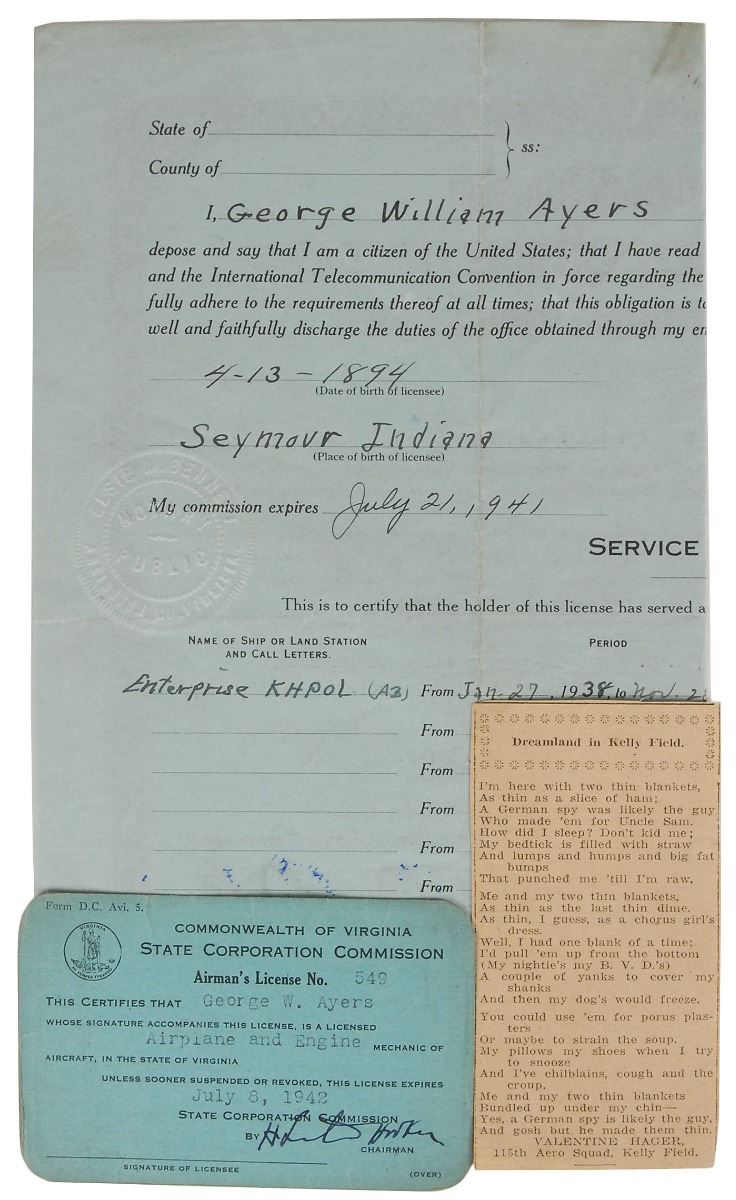 State of
County of
ss:
I, George William Ayers
depose and say that I am a citizen of the United States; that I have read
and the International Telecommunication Convention in force regarding the
fully adhere to the requirements thereof at all times; that this obligation is
well and faithfully discharge the duties of the office obtained through my
4-13-1894
(Date of birth of licensee)
Seymour Indiana
(Place of birth of licensee)
NOTARY
PUBLIC
My commission expires July 21, 1941
SERVICE
This is to certify that the holder of this license has served a
NAME OF SHIP OR LAND STATION
AND CALL LETTERS.
PERIOD
Enterprise KHPOL (A3) From Jan-27, 1938, to Nov. 2
From
From
From
From
From
Dreamland in Kelly Field.
I'm here with two thin blankets,
As thin as a slice of ham;
A German spy was likely the guy
Who made 'em for Uncle Sam.
How did I sleep? Don't kid me;
My bedtick is filled with straw
And lumps and humps and big fat
bumps
That punched me 'till I'm raw.
Me and my two thin blankets,
As thin as the last thin dime.
As thin, I guess, as a chorus girl's
dress.
Well, I had one blank of a time;
I'd pull 'em up from the bottom
(My nightie's my B. V. D.'s)
A couple of yanks to cover my
shanks
And then my dog's would freeze.
You could use 'em for porus plas-
ters
Or maybe to strain the soup.
My pillows my shoes when I try
to snooze
And I've chilblains, cough and the
croup,
Me and my two thin blankets
Bundled up under my chin—
Yes, a German spy is likely the guy,
And gosh but he made them thin.
VALENTINE HAGER,
115th Aero Squad, Kelly Field.
Form D.C. Avi. 5.
VIRGINIA
COMMONWEALTH OF VIRGINIA
STATE CORPORATION COMMISSION
Airman's License No. 549
THIS CERTIFIES THAT George W. Ayers
WHOSE SIGNATURE ACCOMPANIES THIS LICENSE, IS A LICENSED
Airplane and Engine MECHANIC OF
AIRCRAFT, IN THE STATE OF VIRGINIA
UNLESS SOONER SUSPENDED OR REVOKED, THIS LICENSE EXPIRES
July 8, 1942
STATE CORPORATION COMMISSION
BY
CHAIRMAN
SIGNATURE OF LICENSEE
(OVER)